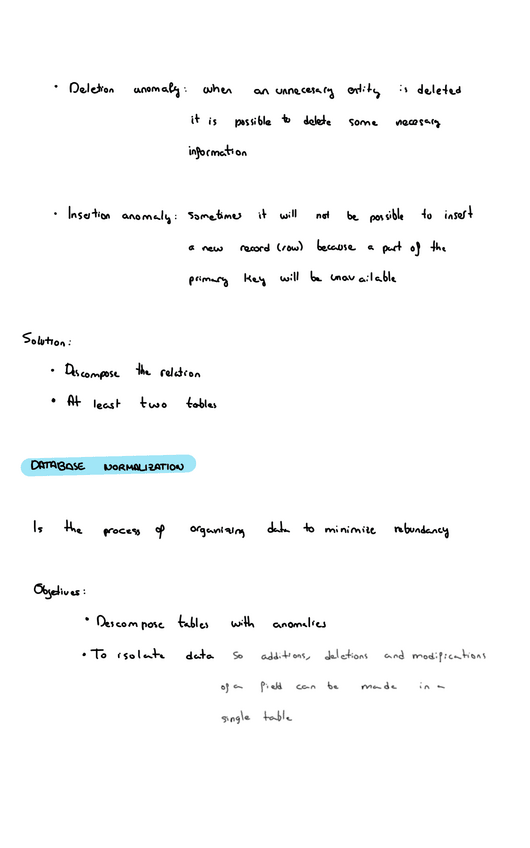 • Deletion anomaly: when an unnecesary entity is deleted
it is possible to delete some necesary
information
• Insertion anomaly: sometimes it will not be possible to insert
a new record (row) because a part of the
primary key will be unavailable
Solution:
• Descompose the relation
• At least two tables
DATABASE NORMALIZATION
Is the process of organising data to minimize rebundancy
Objetives:
• Descompose tables with anomalies
• To isolate data so additions, deletions and modifications
of a field can be made in a
single table